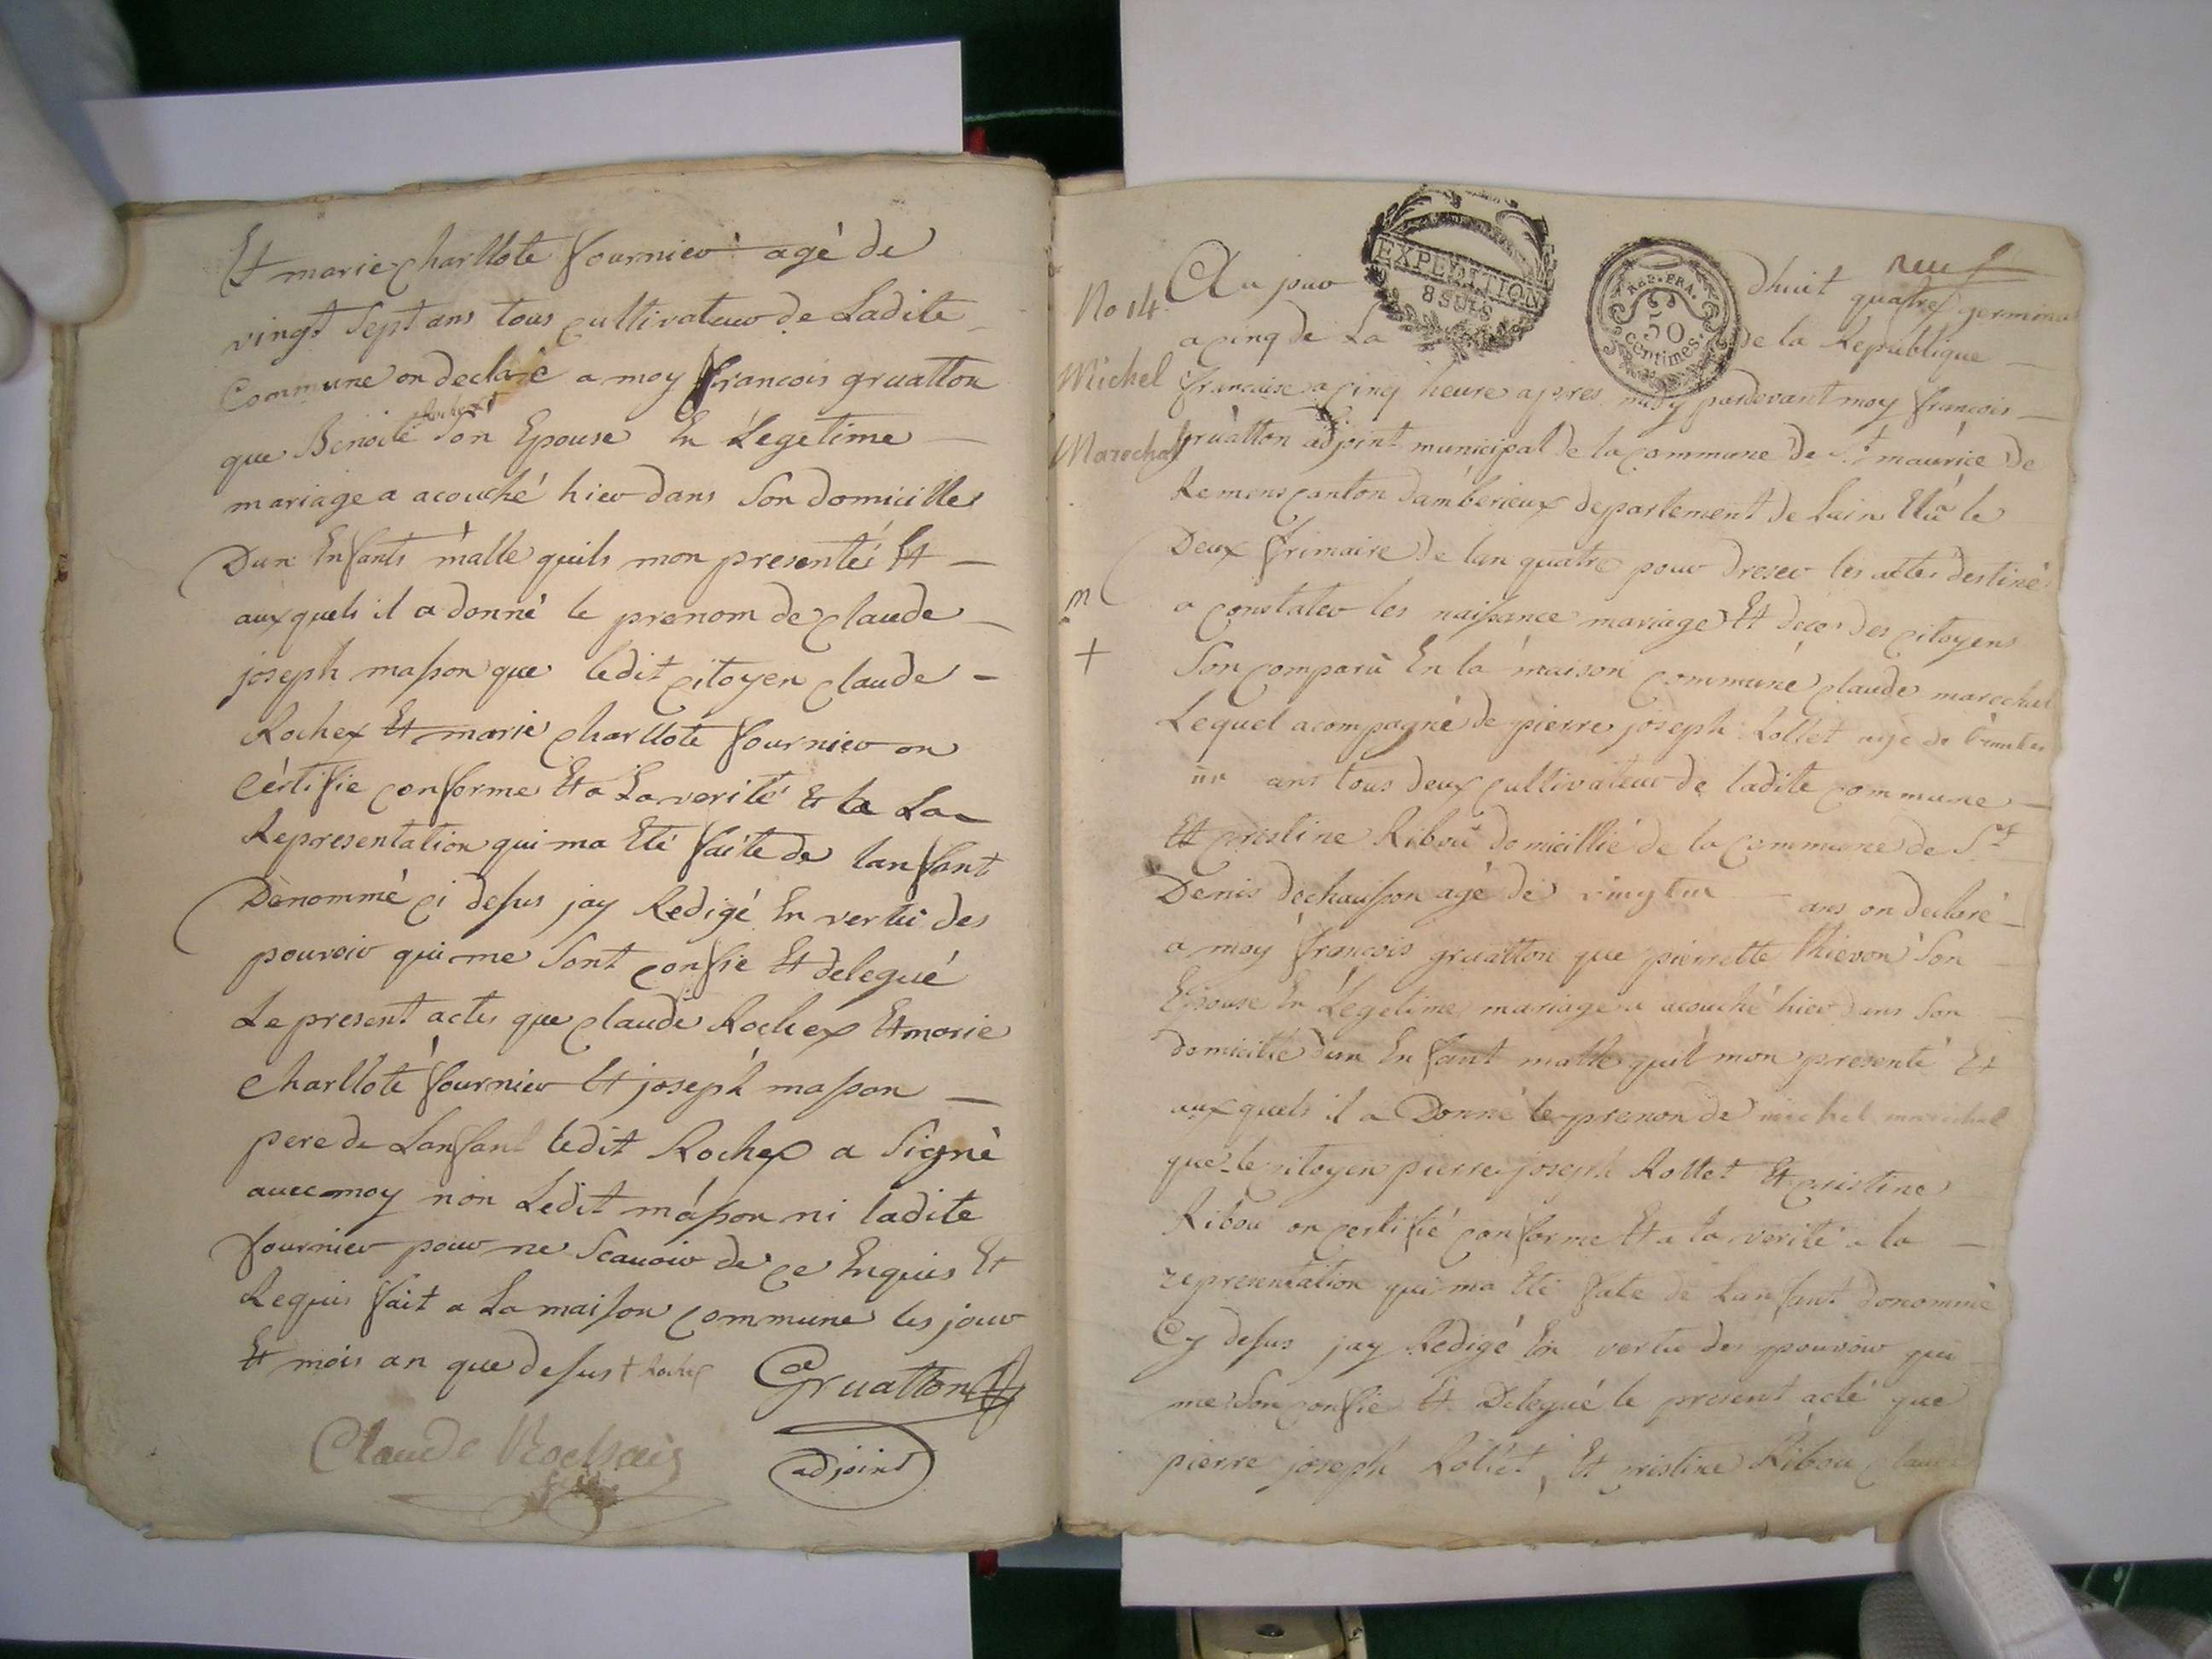 Et marie charllote fournier agé de
vingt Sept ans tous cultivateur de Ladite
Commune on declaré a moy francois gruatton
que Benoite Rochex Son Epouse En Légetime
mariage a acouché hier dans Son domicilles
Dun Enfants malle quils mon presentés Et
auxquels il a donné le prenom de claude
joseph masson que ledit citoyen claude
Rochex Et marie charllote fournier on
Certifie conforme Et a La verité Et la La
Representation qui ma Eté faite de lanfant
Denommé ci desus jay Redigé En vertu des
pouvoir qui me Sont confie Et delegué
Le present actes que claude Rochex Et marie
Charllote fournier Et joseph masson
pere de Lanfant ledit Rochex a Signé
avec moy non Ledit masson ni ladite
fournier pour ne Scavoir de ce Enquis Et
Requis fait a La maison commune les jour
Et mois an que desus + Rochex
Gruatton
adjoint
Claude Rochaix
No 14
Michel
Marechal
m
+
EXPEDITION
8 SOLS
REP. FRA.
50
centimes.
neuf
Au jour dhuit quatre germinal
a cinq de La de la Republique
francaise a cinq heure apres midy pardevant moy francois
gruatton adjoint municipal de la commune de St maurice de
Remens canton damberieux departement de Lain Elû le
Deux frimaire de lan quatre pour dreser les actes destiné
a constater les naissance mariage Et deces des citoyens
Son comparu En la maison commune claude marechal
Lequel acompagné de pierre joseph Rollet agé de trantes
un ans tous deux cultivateur de ladite commune
Et cristine Ribou domicillié de la commune de St
Denis dechausson agé de vingt un ans on declaré
a moy francois gruatton que pierrette thievon Son
Epouse En Légetime mariage a acouché hier dans Son
domicille dun Enfant malle quil mon presenté Et
auxquels il a Donné le prenon de michel marechal
que le citoyen pierre joseph Rollet Et cristine
Ribou on certifié conforme Et a la verité a la
representation qui ma Eté fate de Lanfant donommé
Cy desus jay Redigé En vertu des pouvoir qui
me Son confie Et Delegué le present acté que
pierre joseph Rollet Et cristine Ribou claude